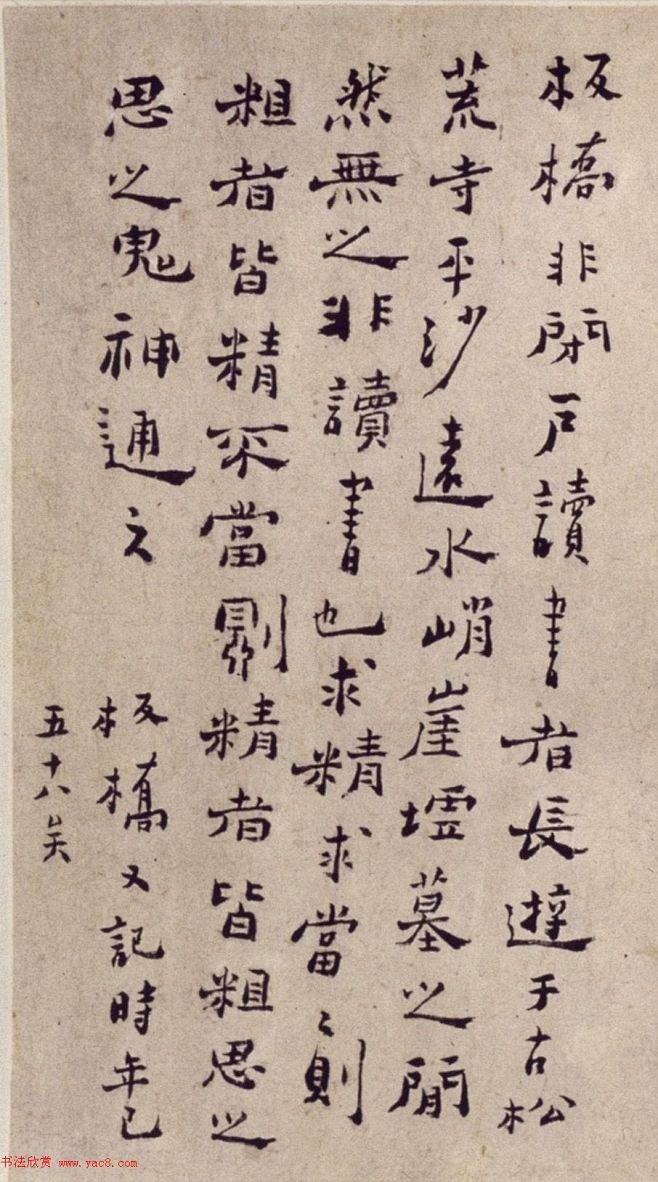 板橋非閉戶讀書者長遊于古松
荒寺平沙遠水峭崖墟墓之間
然無之非讀書也求精求當〻則
粗者皆精不當則精者皆粗思之
思之鬼神通之 板橋又記時年已
五十八矣
书法欣赏 www.yac8.com